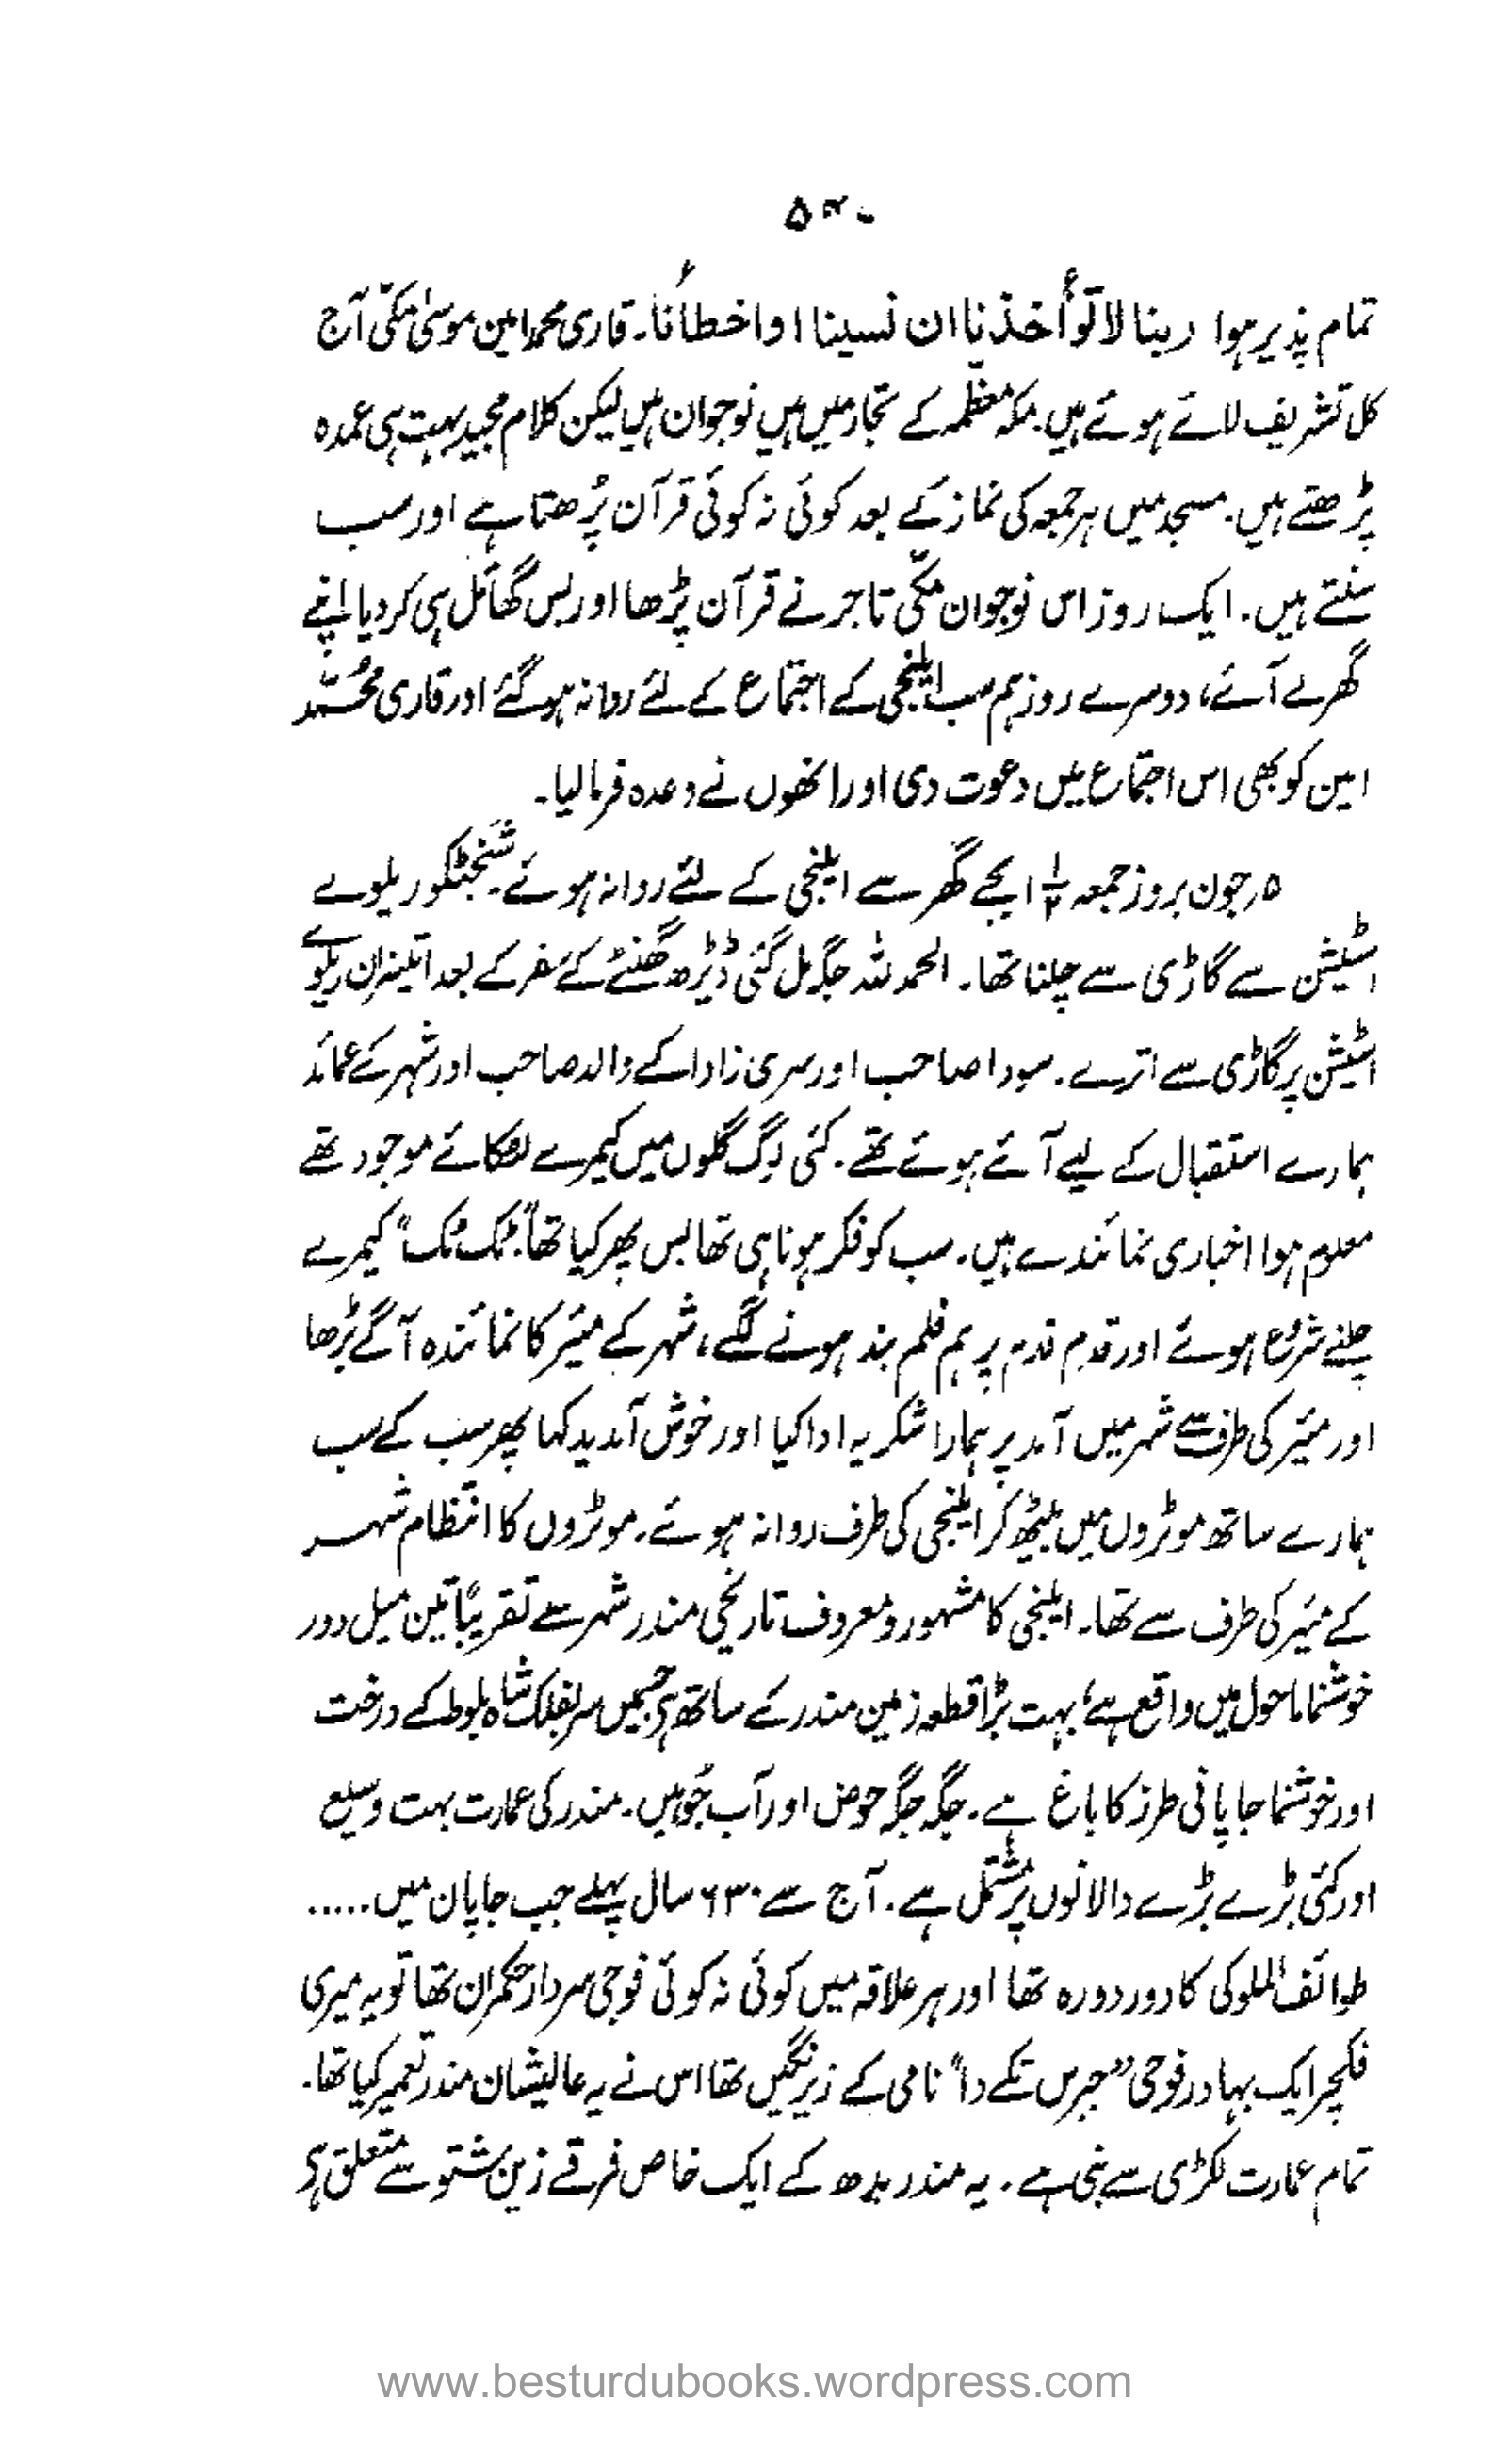 تمام پذیر ہوا ربنا لا تؤأخذنا ان نسینا او اخطأنا۔ قاری محمد امین موسیٰ مکّی آج
کل تشریف لائے ہوئے ہیں۔ مکہ معظمہ کے تجار میں ہیں نوجوان ہیں لیکن کلام مجید بہت ہی عمدہ
پڑھتے ہیں۔ مسجد میں ہر جمعہ کی نماز کے بعد کوئی نہ کوئی قرآن پڑھتا ہے اور سب
سنتے ہیں۔ ایک روز اس نوجوان مکّی تاجر نے قرآن پڑھا اور بس گھائل ہی کر دیا اپنے
گھر لے آئے، دوسرے روز ہم سب ایلنجی کے اجتماع کے لئے روانہ ہو گئے اور قاری محمّد
امین کو بھی اس اجتماع میں دعوت دی اور انھوں نے وعدہ فرما لیا۔
۵؍ جون بروز جمعہ ۱ ۱/۲ بجے گھر سے ایلنجی کے لئے روانہ ہوئے۔ ریلوے
اسٹیشن سے گاڑی سے چلنا تھا۔ الحمد للہ جگہ مل گئی ڈیڑھ گھنٹے کے سفر کے بعد ریلوے
اسٹیشن پر گاڑی سے اترے۔ سودا صاحب اور سری زادا کے والد صاحب اور شہر کے عمائد
ہمارے استقبال کے لیے آئے ہوئے تھے۔ کئی لوگ گلوں میں کیمرے لٹکائے موجود تھے
معلوم ہوا اخباری نمائندے ہیں۔ سب کو فکر ہونا ہی تھا بس پھر کیا تھا "ٹِک ٹِک" کیمرے
چلنے شروع ہوئے اور قدم قدم پر ہم فلم بند ہونے لگے، شہر کے میئر کا نمائندہ آگے بڑھا
اور میئر کی طرف سے شہر میں آمد پر ہمارا شکریہ ادا کیا اور خوش آمدید کہا پھر سب کے سب
ہمارے ساتھ موٹروں میں بیٹھ کر ایلنجی کی طرف روانہ ہوئے۔ موٹروں کا انتظام شہر
کے میئر کی طرف سے تھا۔ ایلنجی کا مشہور و معروف تاریخی مندر شہر سے تقریباً تین میل دور
خوشنما ماحول میں واقع ہے؛ بہت بڑا قطعہ زمین مندر کے ساتھ ہی جسمیں سربفلک شاہ بلوط کے درخت
اور خوشنما جاپانی طرز کا باغ ہے۔ جگہ جگہ حوض اور آب جُو ہیں۔ مندر کی عمارت بہت وسیع
اور کئی بڑے بڑے دالانوں پر مشتمل ہے۔ آج سے ۶۳۰ سال پہلے جب جاپان میں .....
طوائف الملوکی کا دور دورہ تھا اور ہر علاقہ میں کوئی نہ کوئی فوجی سردار حکمران تھا تو یہ میری
ایک بہادر فوجی "جرس تکے دا" نامی کے زیر نگیں تھا اس نے یہ عالیشان مندر تعمیر کیا تھا۔
تمام عمارت لکڑی سے بنی ہے۔ یہ مندر بدھ کے ایک خاص فرقے زین شتو سے متعلق ہی
www.besturdubooks.wordpress.com